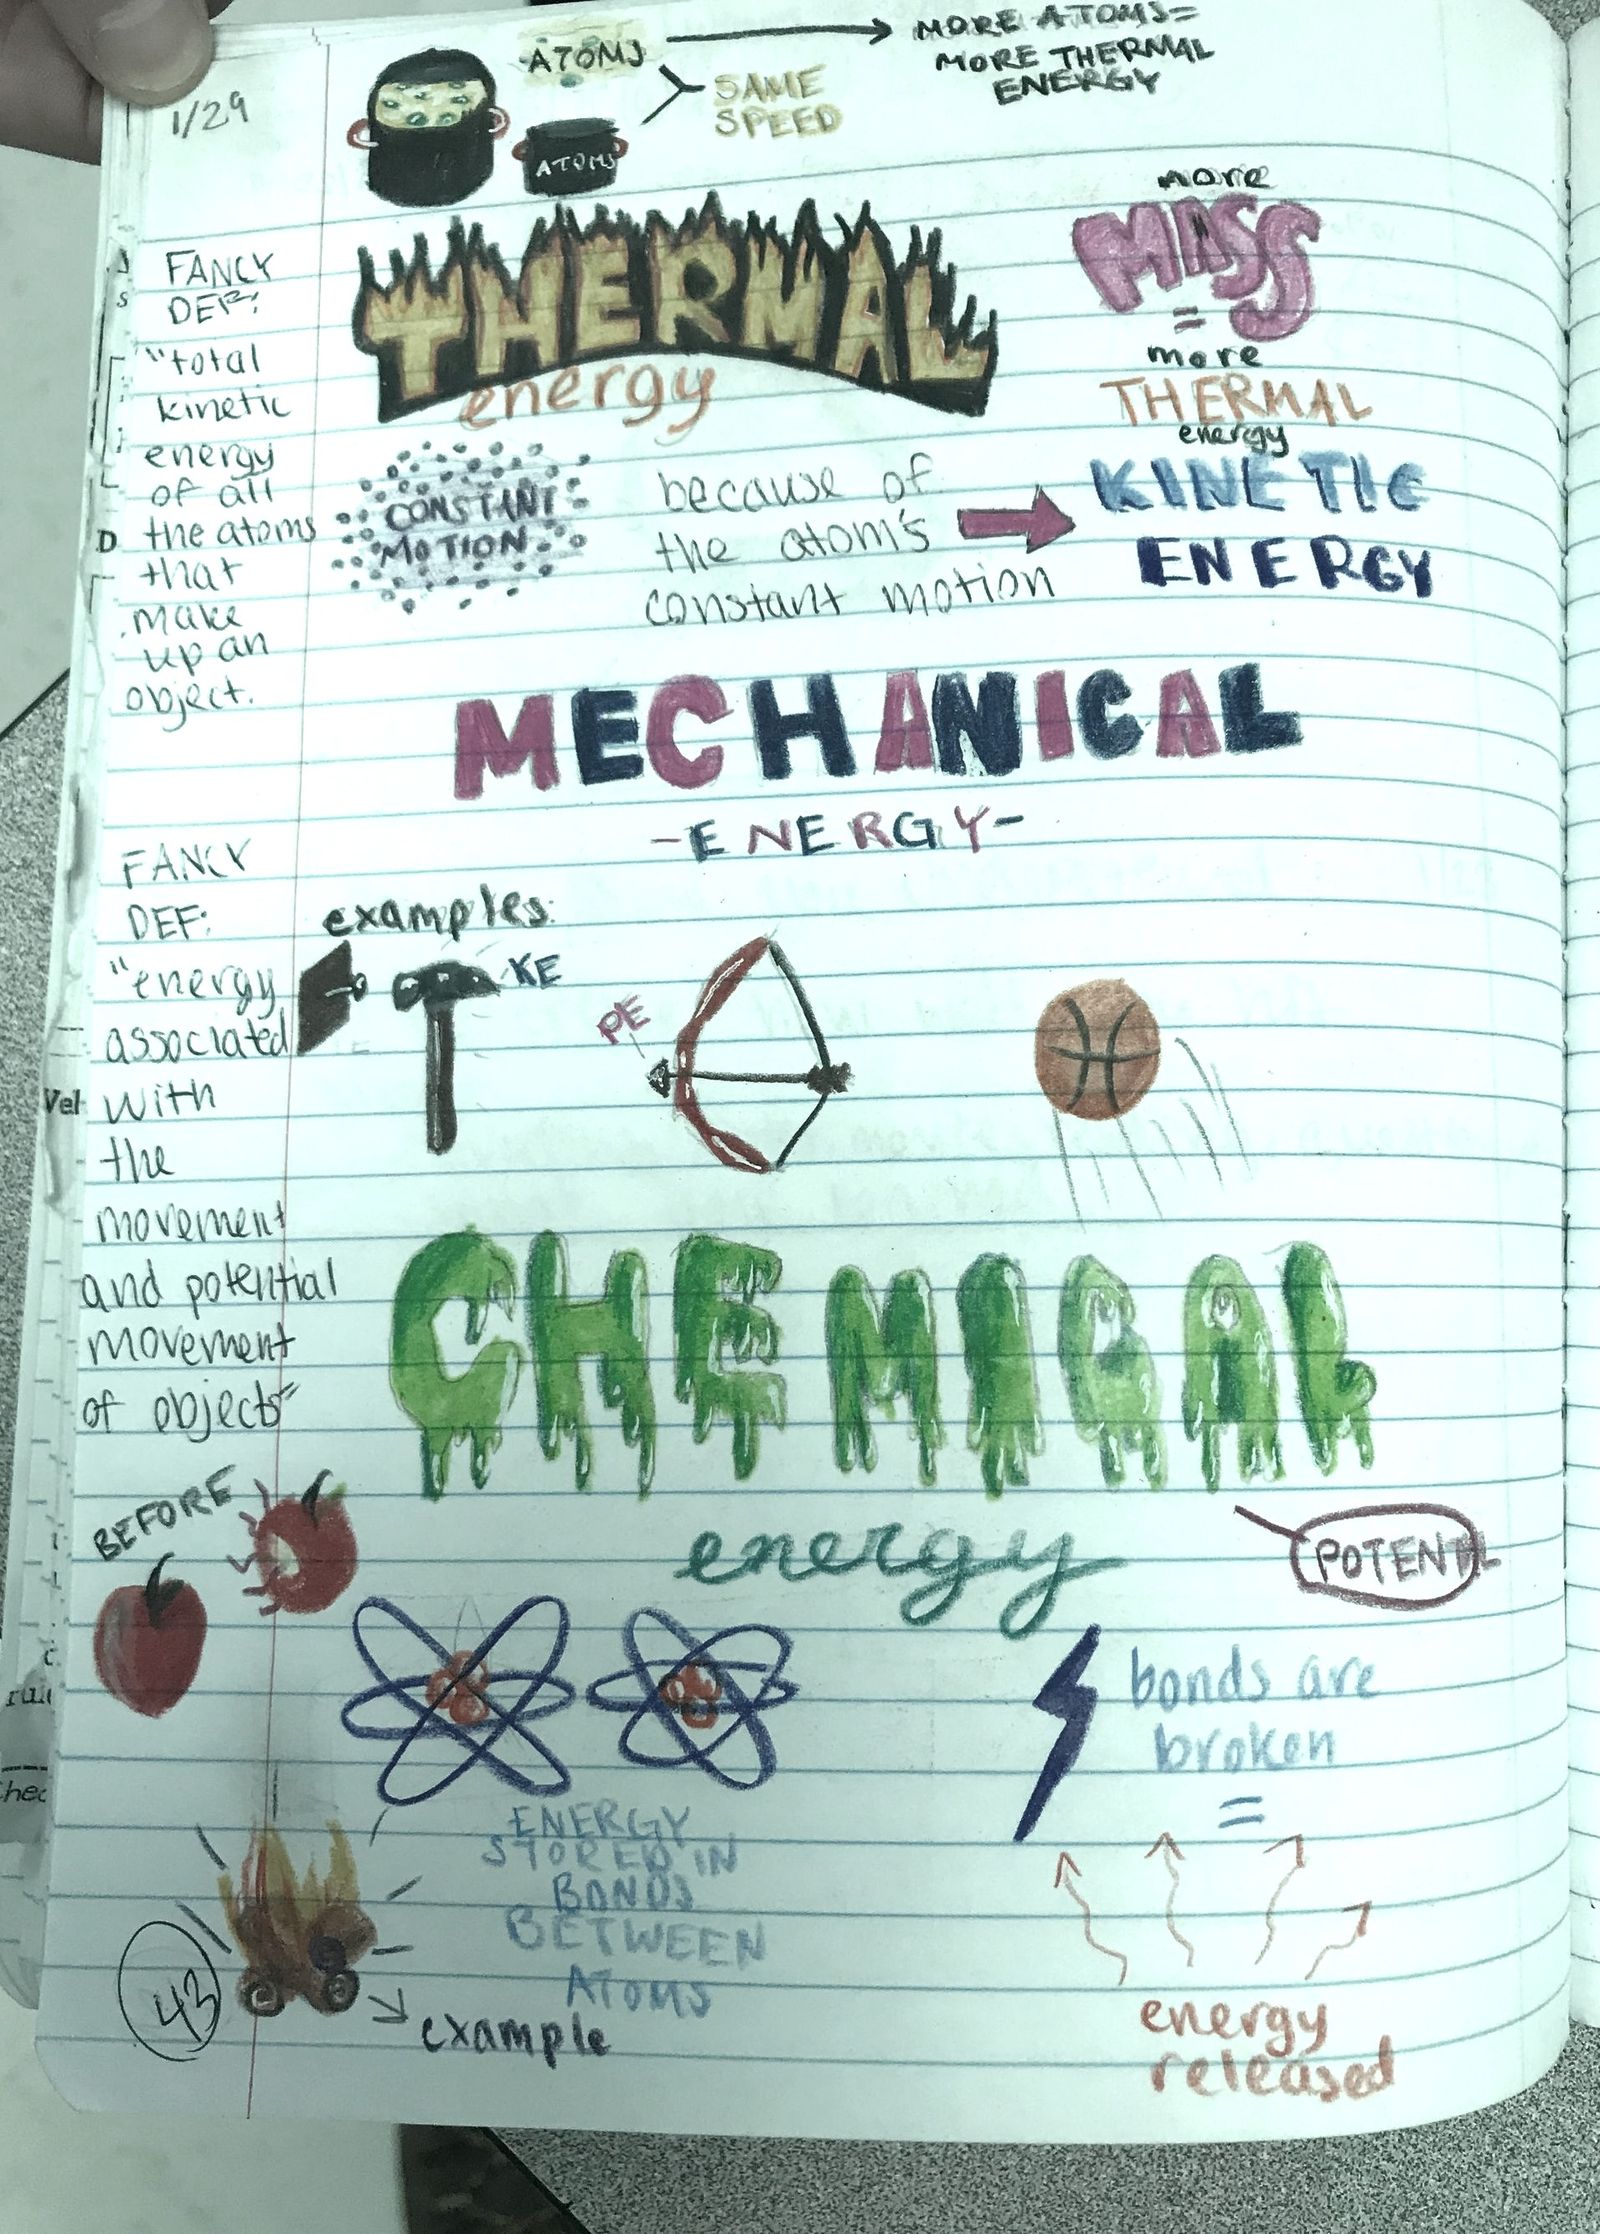 1/29
ATOMS
MORE ATOMS=
MORE THERMAL
ENERGY
SAME
SPEED
ATOMS
FANCY
DEF:
"total
kinetic
energy
of all
the atoms
that
make
up an
object.
THERMAL
energy
more
MASS
=
more
THERMAL
energy
CONSTANT
MOTION
because of
the atom's
constant motion
KINETIC
ENERGY
MECHANICAL
-ENERGY-
FANCY
DEF:
"energy
associated
with
the
movement
and potential
movement
of objects"
examples:
KE
PE
CHEMICAL
energy
POTENTL
BEFORE
ENERGY
STORED IN
BONDS
BETWEEN
ATOMS
bonds are
broken
=
energy
released
43
example
D
Vel